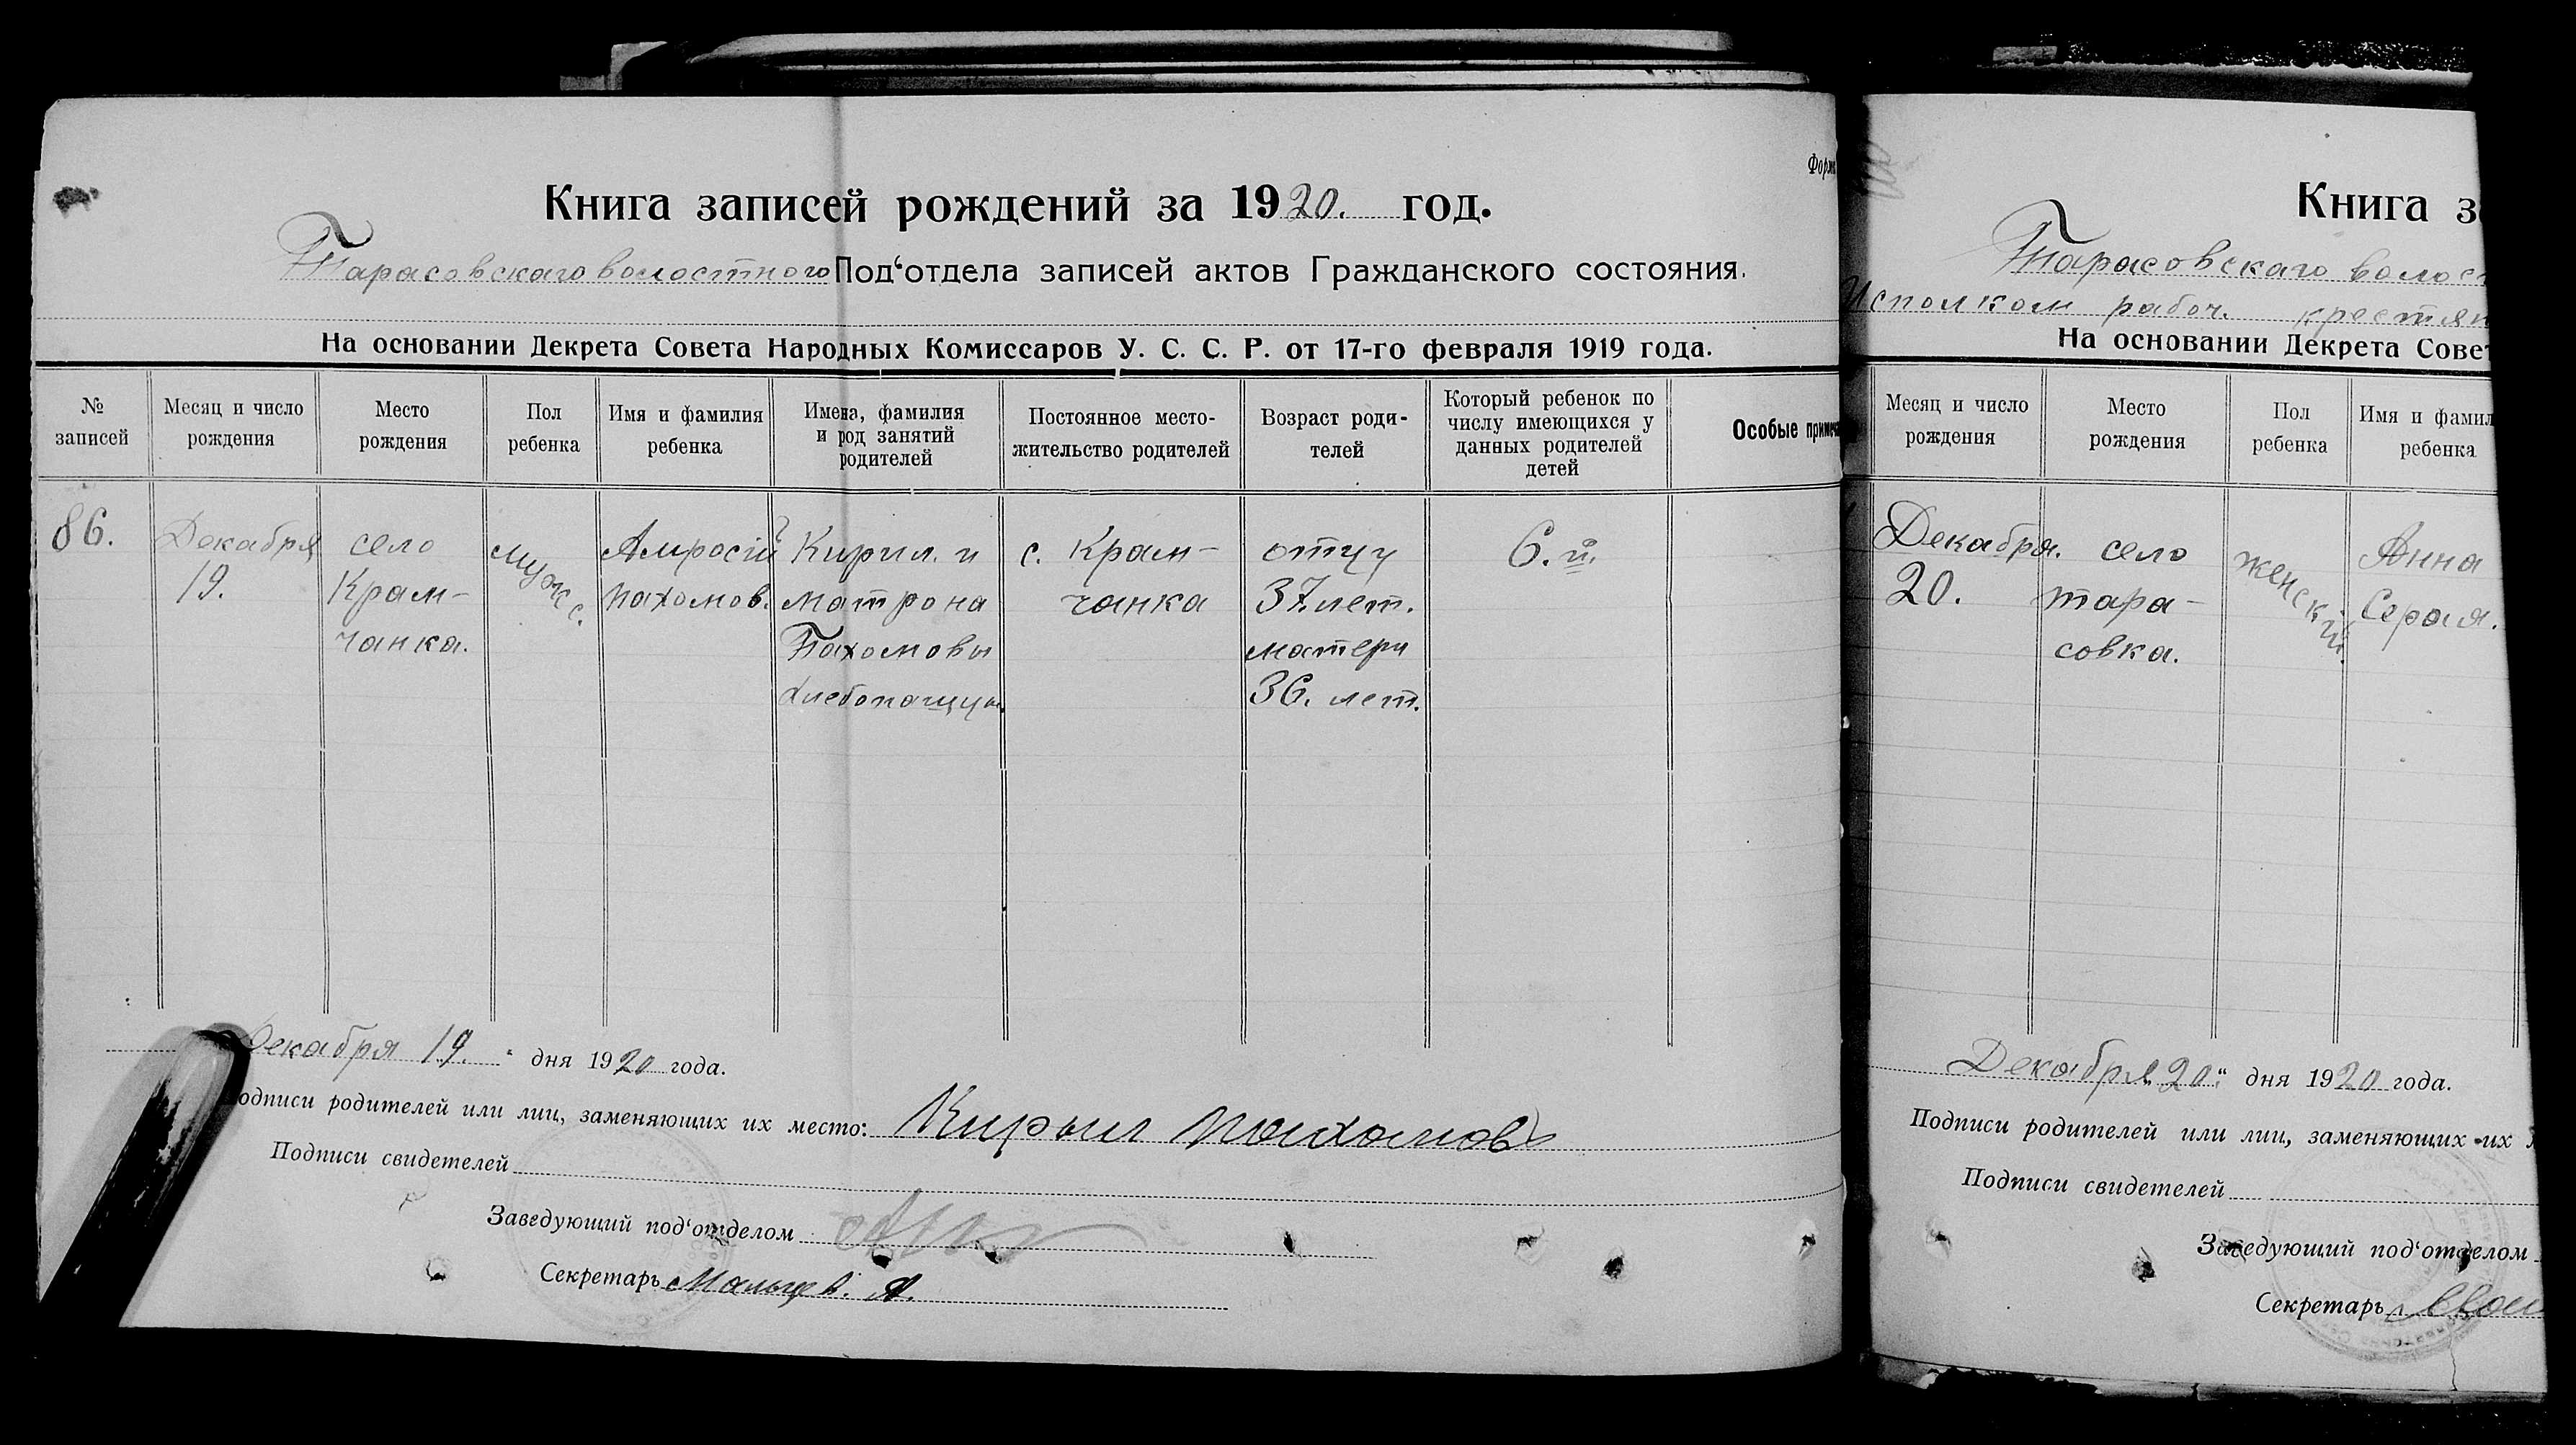 Форм
Книга записей рождений за 1920. год.
Тарасовскаго волостного Под‘отдела записей актов Гражданского состояния.
На основании Декрета Совета Народных Комиссаров У. С. С. Р. от 17-го февраля 1919 года.
№ записей
Месяц и число рождения
Место рождения
Пол ребенка
Имя и фамилия ребенка
Имена, фамилия и род занятий родителей
Постоянное место-жительство родителей
Возраст роди-телей
Который ребенок по числу имеющихся у данных родителей детей
Особые примеча
86.
Декабря
19.
село
Крам-
чанка.
мужс.
Амросій
Пахомов.
Кирил. и
матрона
Пахомовы
хлебопащцы.
с. Крам-
чанка
отцу
37. лет.
матери
36. лет.
6. й.
Декабря 19. " дня 1920 года.
одписи родителей или лиц, заменяющих их место: Кирыл Пахамов
Подписи свидетелей
Заведующий под‘отделом
Секретарь Мальцев. А.
Книга з
Тарасовскаго волос
Исполком рабоч. крестян
На основании Декрета Совет
Месяц и число рождения
Место рождения
Пол ребенка
Имя и фамил
ребенка
Декабря.
20.
село
тара-
совка.
женскій.
Анна
Серая.
Декабря 20" дня 1920 года.
Подписи родителей или лиц, заменяющих их
Подписи свидетелей
Заведующий под‘отделом
Секретарь